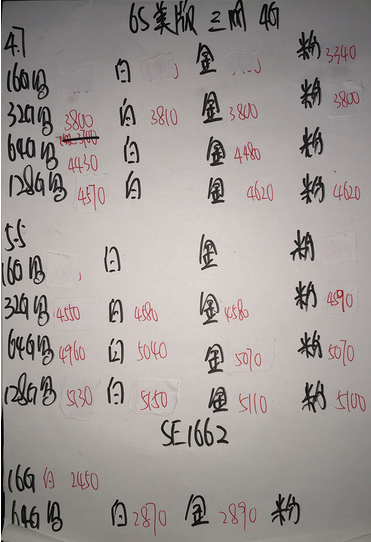 6S美版三网4G
4.7
16G 白 金 粉3340
32G 3800 白3810 金3800 粉3800
64G 4430 白 金4480 粉
128G 4570 白 金4620 粉4620
5.5
16G 白 金 粉
32G 4550 白4580 金4580 粉4590
64G 4960 白5040 金5070 粉5070
128G 5130 白5150 金5110 粉5100
SE1662
16G 白2450
64G 白2870 金2890 粉